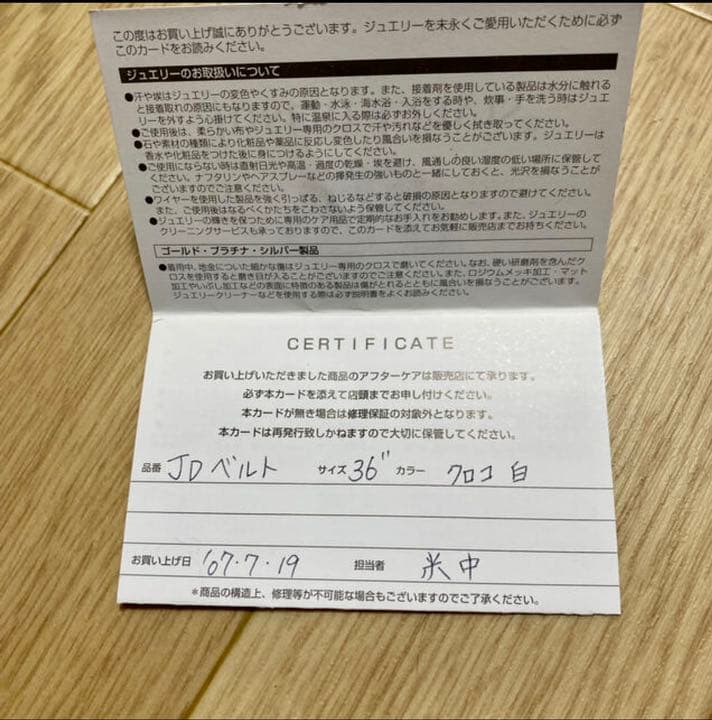 この度はお買い上げ誠にありがとうございます。ジュエリーを末永くご愛用いただくために必ず
このカードをお読みください。
ジュエリーのお取扱いについて
●汗や埃はジュエリーの変色やくすみの原因となります。また、接着剤を使用している製品は水分に触れる
と接着取れの原因にもなりますので、運動・水泳・海水浴・入浴をする時や、炊事・手を洗う時はジュエ
リーを外すよう心掛けてください。特に温泉に入る際は必ずお外しください。
●ご使用後は、柔らかい布やジュエリー専用のクロスで汗や汚れなどを優しく拭き取ってください。
●石や素材の種類により化粧品や薬品に反応し変色したり風合いを損なうことがございます。ジュエリーは
香水や化粧品をつけた後に身につけるようにしてください。
●ご使用にならない時は直射日光や高温・過度の乾燥・埃を避け、風通しの良い湿度の低い場所に保管して
ください。ナフタリンやヘアスプレーなどの揮発生の強いものと一緒にしておくと、光沢を損なうことが
ございますのでご注意ください。
●ワイヤーを使用した製品を強く引っぱる、ねじるなどすると破損の原因となりますので避けてください。
また、ご使用後はなるべくかたちをこわさないよう保管してください。
●ジュエリーの輝きを保つために専用のケア用品で定期的なお手入れをお勧めします。また、ジュエリーの
クリーニングサービスも承っておりますので、このカードを添えてお気軽に販売店までお持ちください。
ゴールド・プラチナ・シルバー製品
●着用中、地金についた細かな傷はジュエリー専用のクロスで磨いてください。なお、硬い研磨剤を含んだク
ロスを使用すると磨き目が入ることがございますのでご注意ください。また、ロジウムメッキ加工・マット
加工やいぶし加工などの表面に特徴のある製品は傷がとれるとともに風合いを損なうことがございます。
ジュエリークリーナーなどを使用する際は必ず説明書をよくお読みください。
CERTIFICATE
お買い上げいただきました商品のアフターケアは販売店にて承ります。
必ず本カードを添えて店頭までお申し付けください。
本カードが無き場合は修理保証の対象外となります。
本カードは再発行致しかねますので大切に保管してください。
品番 JDベルト サイズ 36" カラー クロコ 白
お買い上げ日 '07・7・19 担当者 米中
*商品の構造上、修理等が不可能な場合もございますのでご了承ください。